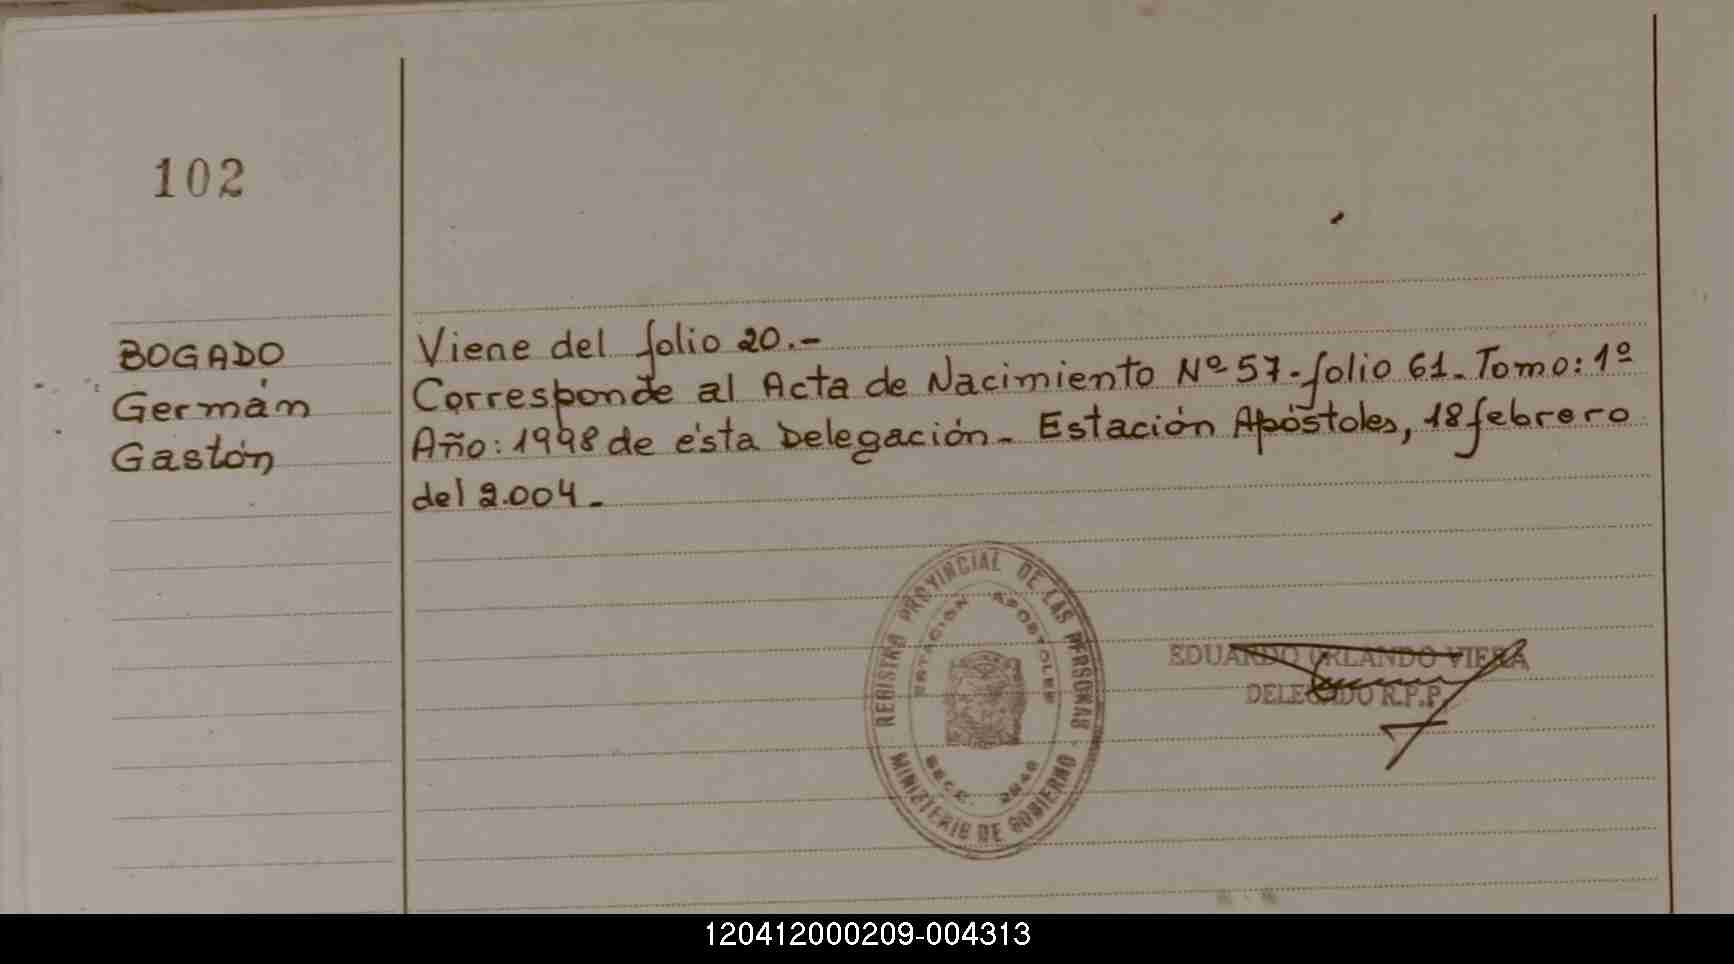 102
BOGADO
Germán
Gastón
Viene del folio 20.-
Corresponde al Acta de Nacimiento Nº 57-folio 61-Tomo: 1º
Año: 1998 de ésta Delegación- Estación Apóstoles, 18 febrero
del 2.004-
REGISTRO PROVINCIAL DE LAS PERSONAS
ESTACION APOSTOLES
MINISTERIO DE GOBIERNO
EDUARDO ORLANDO VIERA
DELEGADO R.P.P.
120412000209-004313